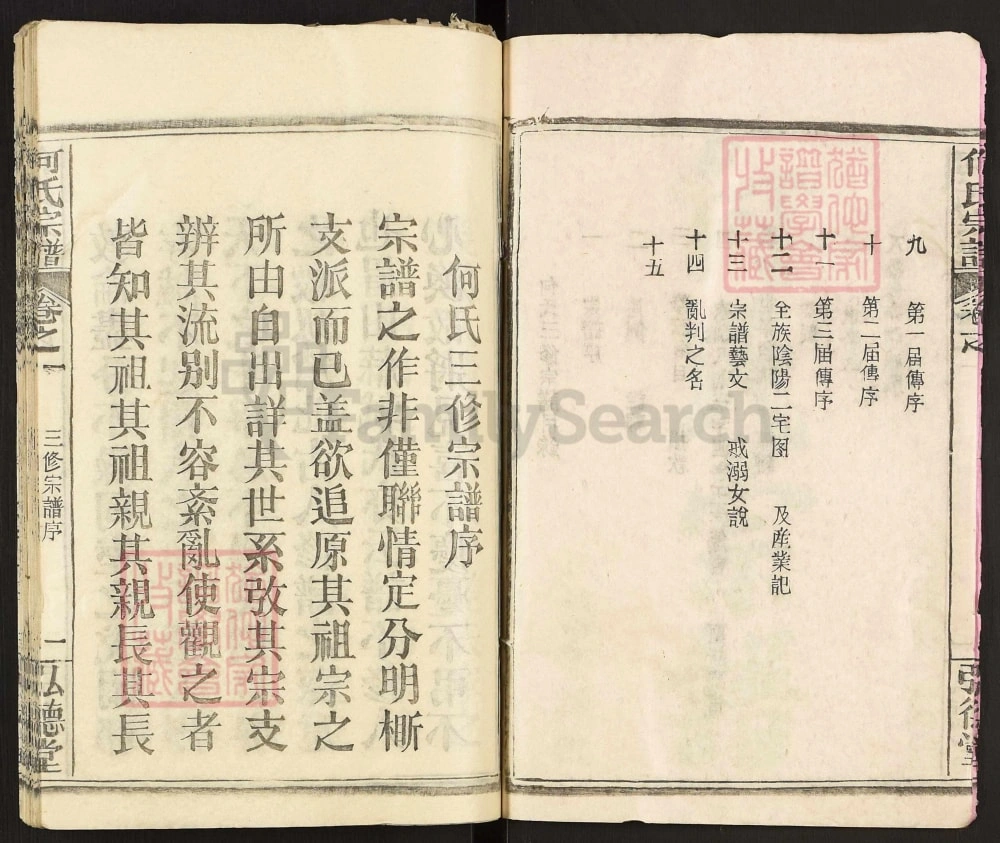 何氏宗譜
九 第一届傳序
十 第二届傳序
十一 第三届傳序
十二 全族陰陽二宅图 及産業記
十三 宗譜藝文 戒溺女說
十四 亂判之名
十五
何氏三修宗譜序
宗譜之作非僅聯情定分明
支派而已盖欲追原其祖宗之
所由自出詳其世系攷其宗支
辨其流別不容紊亂使觀之者
皆知其祖其祖親其親長其長
何氏宗譜 卷之一 三修宗譜序 一 弘德堂
FamilySearch